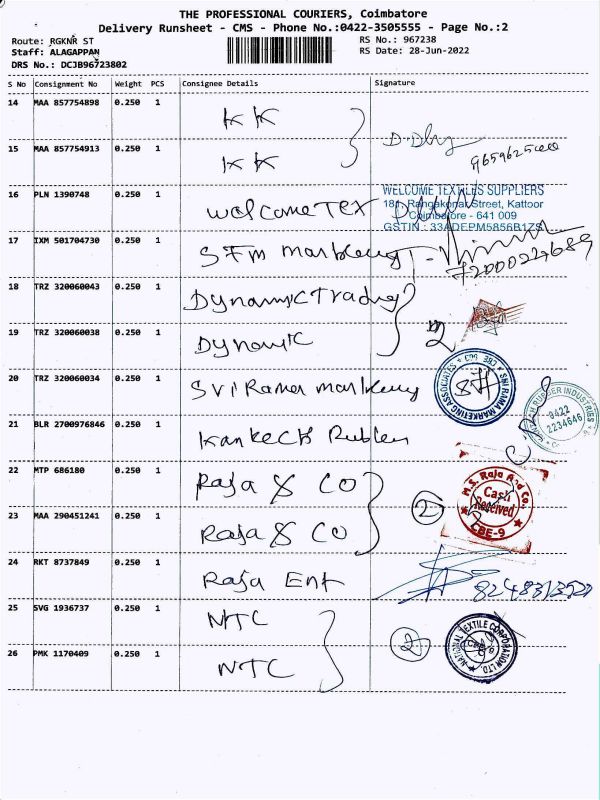 THE PROFESSIONAL COURIERS, Coimbatore
Delivery Runsheet - CMS - Phone No.:0422-3505555 - Page No.:2
Route: RGKNR ST
RS No.: 967238
Staff: ALAGAPPAN
RS Date: 28-Jun-2022
DRS No.: DCJB96723802
S No Consignment No Weight PCS Consignee Details Signature
14 MAA 857754898 0.250 1 KK
15 MAA 857754913 0.250 1 KK
16 PLN 1390748 0.250 1 welcome Tex
WELCOME TEXTILES SUPPLIERS
181, Rangakonar Street, Kattoor
Coimbatore - 641 009
GSTIN : 33ADEPM5856B1ZS
17 IXM 501704730 0.250 1 SFM
18 TRZ 320060043 0.250 1 Dynamic Trading
19 TRZ 320060038 0.250 1 Dynamic
2
20 TRZ 320060034 0.250 1 Sri Rama
SRI RAMA MARKETING ASSOCIATES
CBE
21 BLR 2700976846 0.250 1
RUBBER INDUSTRIES
0422
2234646
22 MTP 686180 0.250 1 Raja & CO
23 MAA 290451241 0.250 1 Raja & CO
2
M.S. Raja And Co.
Cash
Received
CBE-9
24 RKT 8737849 0.250 1 Raja Ent
25 SVG 1936737 0.250 1 NTC
26 PMK 1170409 0.250 1 NTC
2
NATIONAL TEXTILE CORPORATION LTD.